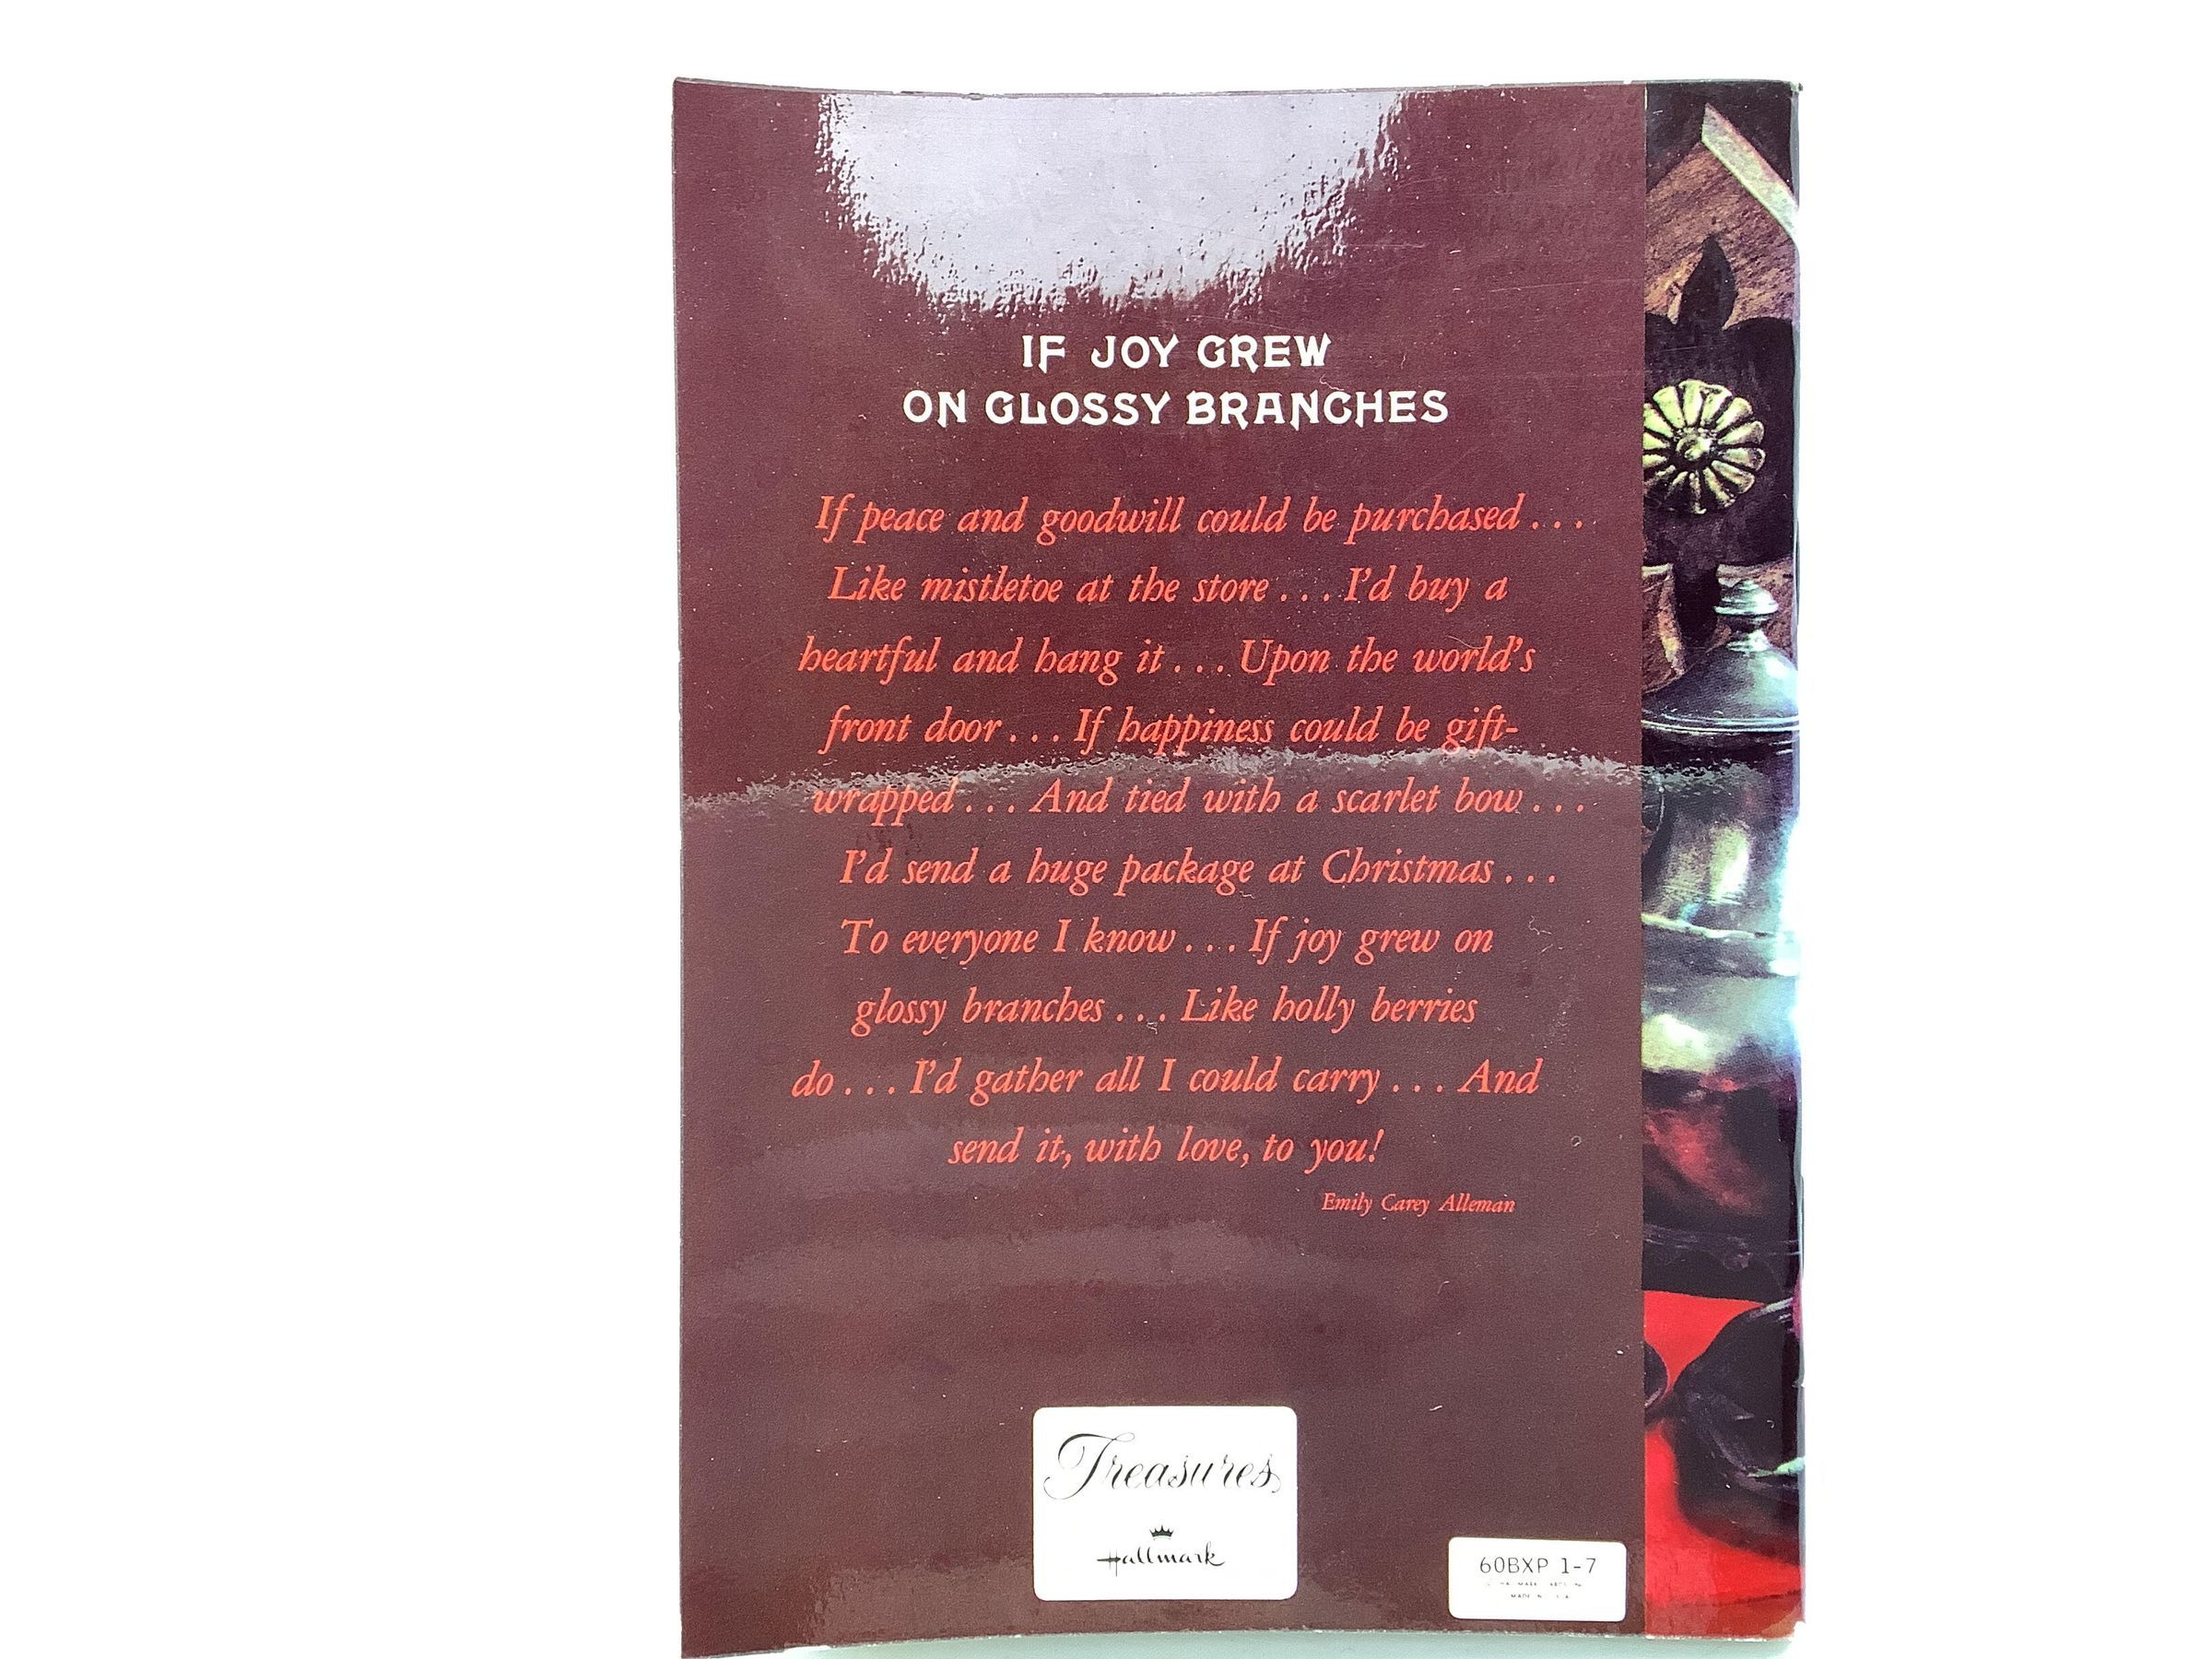 IF JOY GREW
ON GLOSSY BRANCHES
If peace and goodwill could be purchased . . .
Like mistletoe at the store . . . I'd buy a
heartful and hang it . . . Upon the world's
front door . . . If happiness could be gift-
wrapped . . . And tied with a scarlet bow . . .
I'd send a huge package at Christmas . . .
To everyone I know . . . If joy grew on
glossy branches . . . Like holly berries
do . . . I'd gather all I could carry . . . And
send it, with love, to you!
Emily Carey Alleman
Treasures
Hallmark
60BXP 1-7